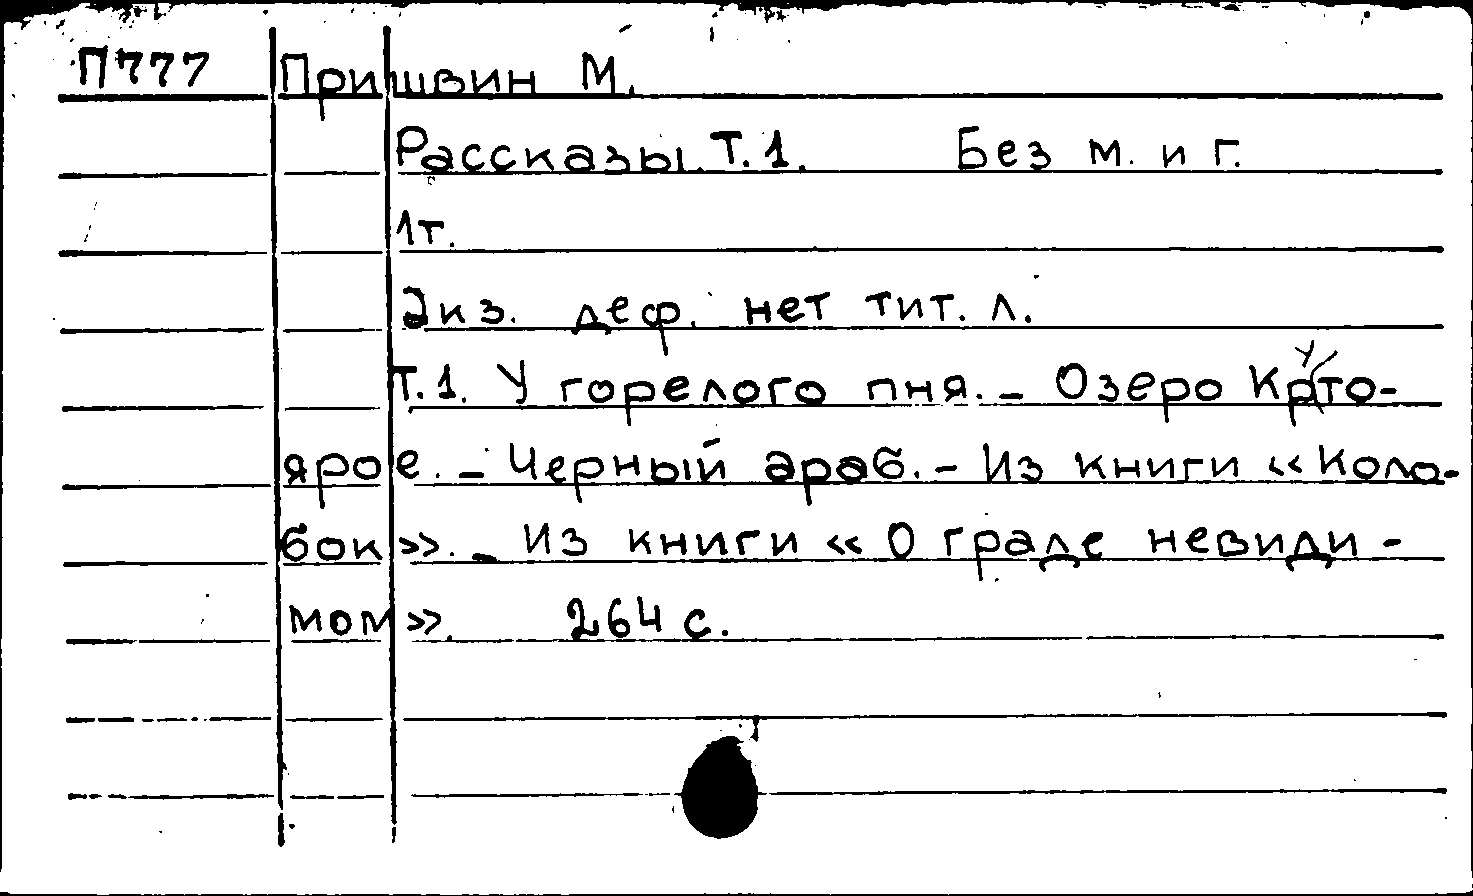 П777 Пришвин М.
Рассказы. Т.1. Без м. и г.
1т.
Экз. деф. нет тит. л.
Т.1. У горелого пня. – Озеро Круто-
ярое. – Черный араб. – Из книги «Коло-
бок». – Из книги «О граде невиди-
мом». 264 с.